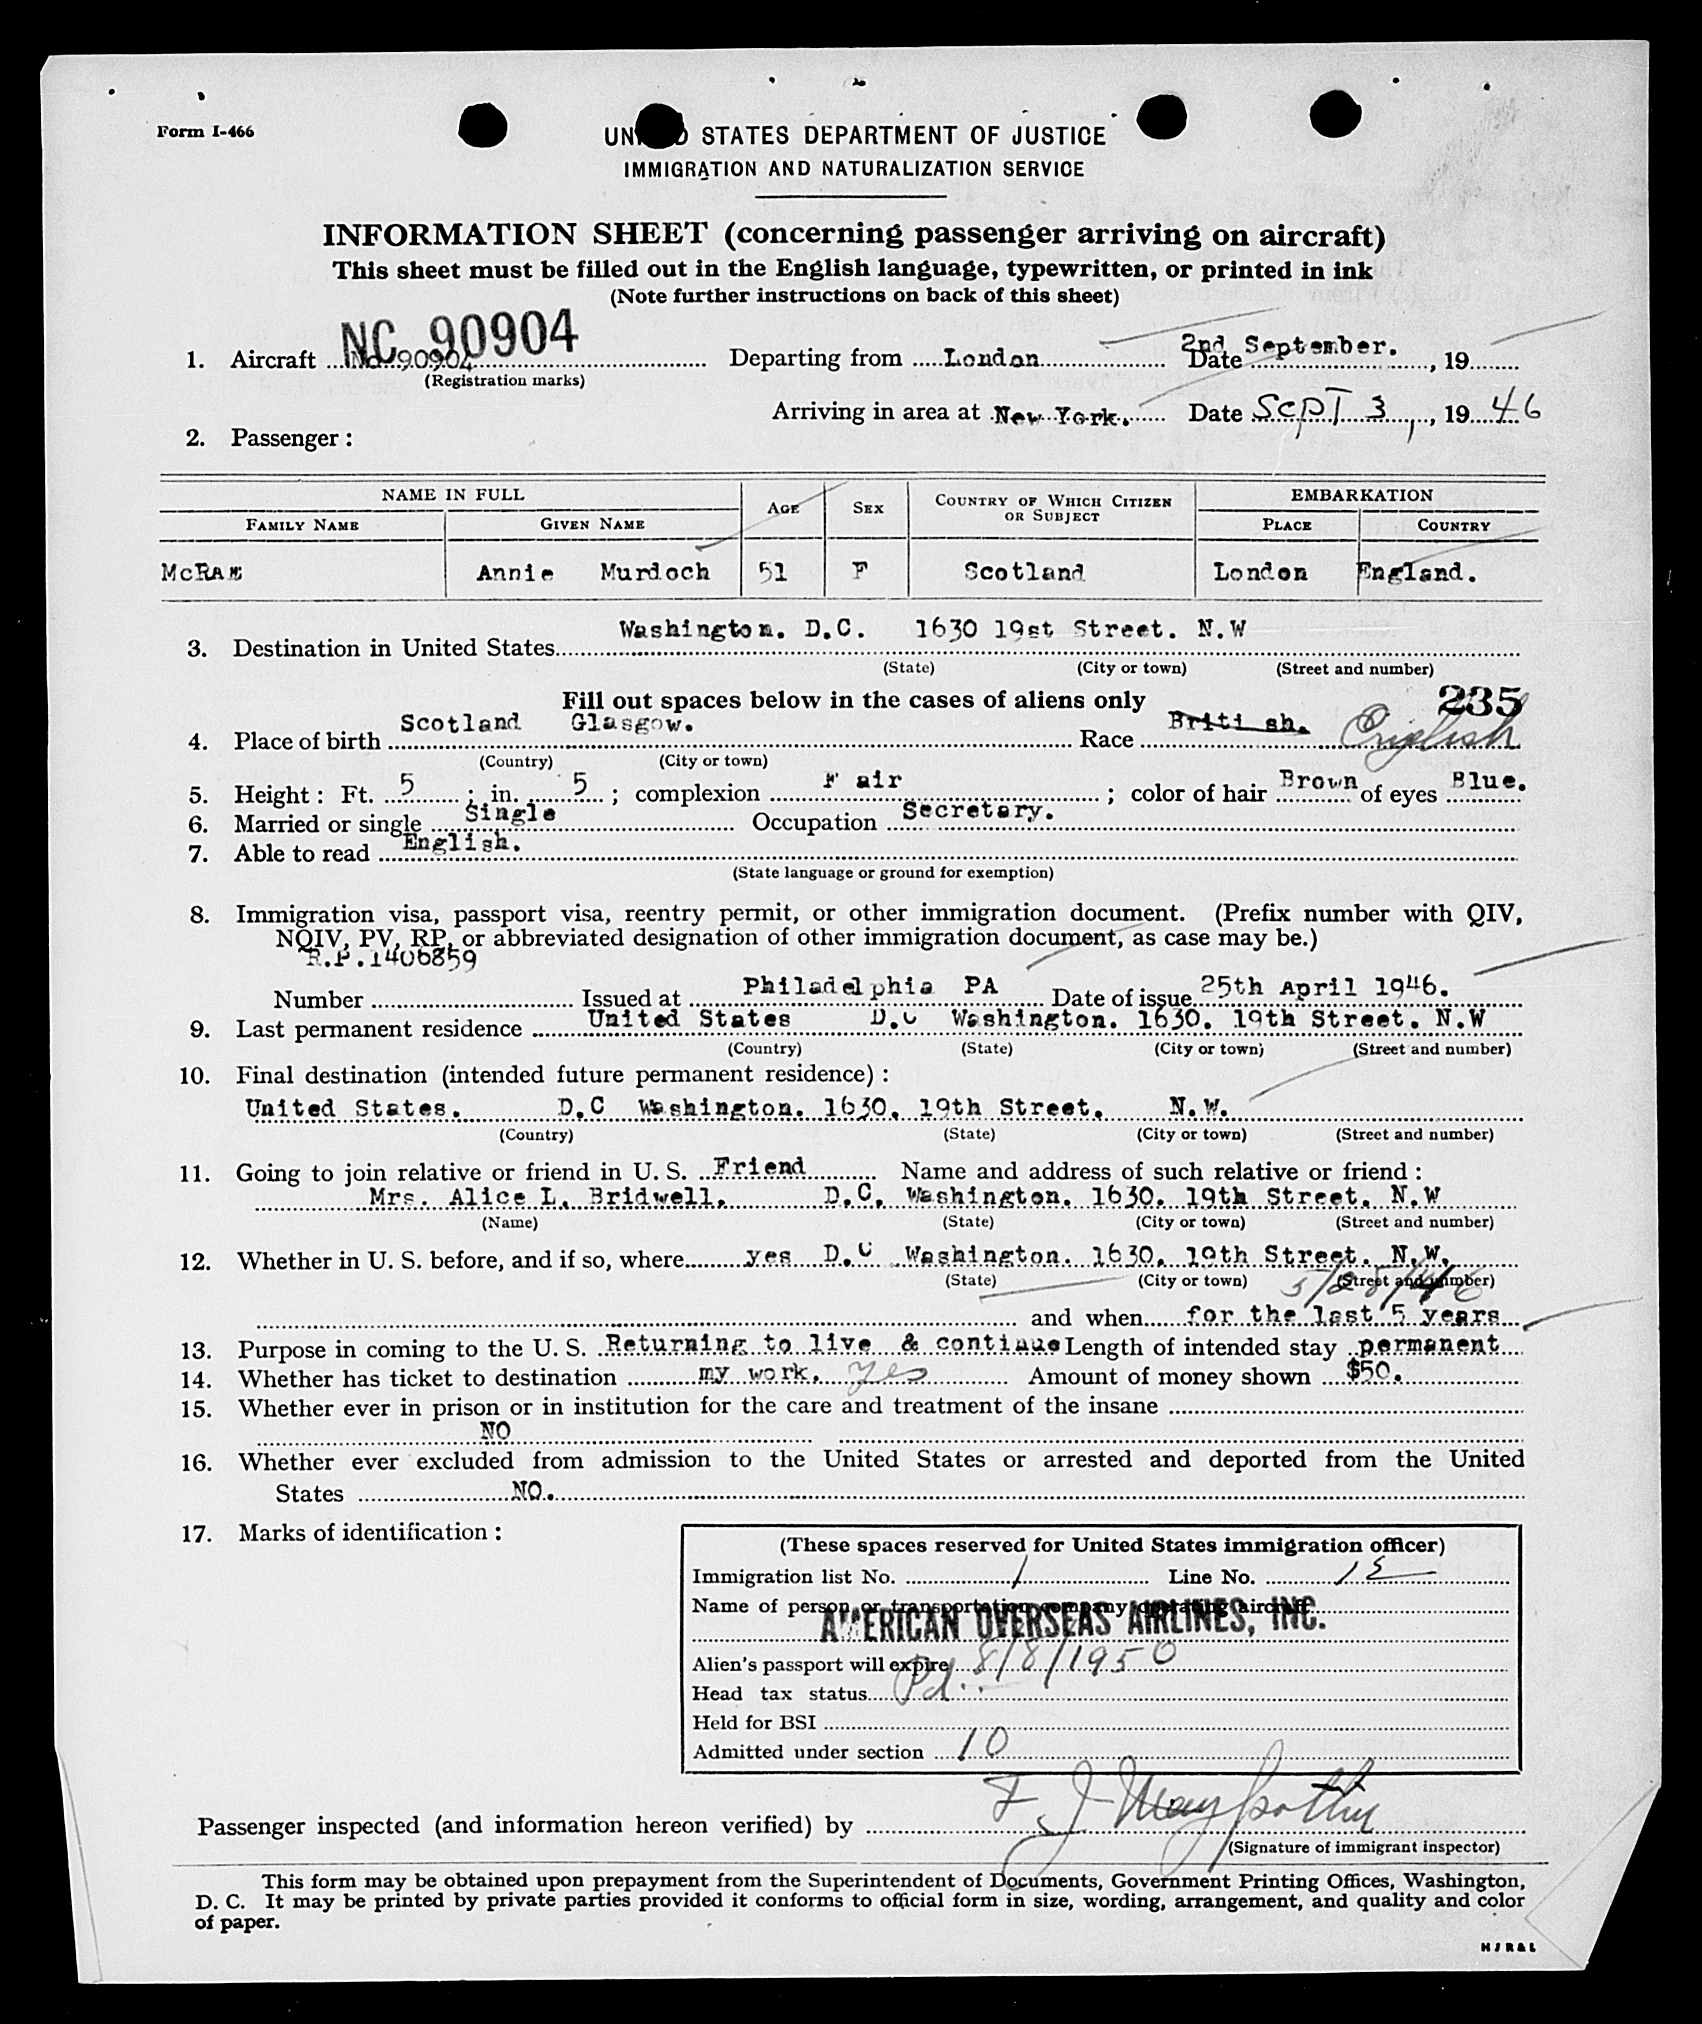 Form I-466
UNITED STATES DEPARTMENT OF JUSTICE
IMMIGRATION AND NATURALIZATION SERVICE
INFORMATION SHEET (concerning passenger arriving on aircraft)
This sheet must be filled out in the English language, typewritten, or printed in ink
(Note further instructions on back of this sheet)
NC 90904
1. Aircraft No. 90904 Departing from London Date 2nd September. , 19
(Registration marks)
Arriving in area at New York. Date SEPT 3, , 19 46
2. Passenger :
NAME IN FULL AGE SEX COUNTRY OF WHICH CITIZEN OR SUBJECT EMBARKATION
FAMILY NAME GIVEN NAME PLACE COUNTRY
McRAE Annie Murdoch 51 F Scotland London England.
3. Destination in United States Washington. D.C. 1630 19st Street. N.W
(State) (City or town) (Street and number)
Fill out spaces below in the cases of aliens only 235
4. Place of birth Scotland Glasgow. Race British. English
(Country) (City or town)
5. Height : Ft. 5 ; in. 5 ; complexion Fair ; color of hair Brown of eyes Blue.
6. Married or single Single Occupation Secretary.
7. Able to read English.
(State language or ground for exemption)
8. Immigration visa, passport visa, reentry permit, or other immigration document. (Prefix number with QIV,
NQIV, PV, RP, or abbreviated designation of other immigration document, as case may be.)
R.P.1406859
Number Issued at Philadelphia PA Date of issue 25th April 1946.
9. Last permanent residence United States D.C Washington. 1630. 19th Street. N.W
(Country) (State) (City or town) (Street and number)
10. Final destination (intended future permanent residence) :
United States. D.C Washington. 1630. 19th Street. N.W.
(Country) (State) (City or town) (Street and number)
11. Going to join relative or friend in U. S. Friend Name and address of such relative or friend :
Mrs. Alice L. Bridwell. D.C. Washington. 1630. 19th Street. N.W
(Name) (State) (City or town) (Street and number)
12. Whether in U. S. before, and if so, where yes D.C Washington. 1630. 19th Street. N.W.
(State) (City or town) (Street and number)
5/28/46
and when for the last 5 years
13. Purpose in coming to the U. S. Returning to live & continue Length of intended stay permanent
14. Whether has ticket to destination my work. yes Amount of money shown $50.
15. Whether ever in prison or in institution for the care and treatment of the insane
NO
16. Whether ever excluded from admission to the United States or arrested and deported from the United
States NO.
17. Marks of identification :
(These spaces reserved for United States immigration officer)
Immigration list No. 1 Line No. 12
Name of person or transportation company operating aircraft
AMERICAN OVERSEAS AIRLINES, INC.
Alien's passport will expire 8/8/1950
Head tax status Pd.
Held for BSI
Admitted under section 10
Passenger inspected (and information hereon verified) by F J
(Signature of immigrant inspector)
This form may be obtained upon prepayment from the Superintendent of Documents, Government Printing Offices, Washington,
D. C. It may be printed by private parties provided it conforms to official form in size, wording, arrangement, and quality and color
of paper.
HJR&L